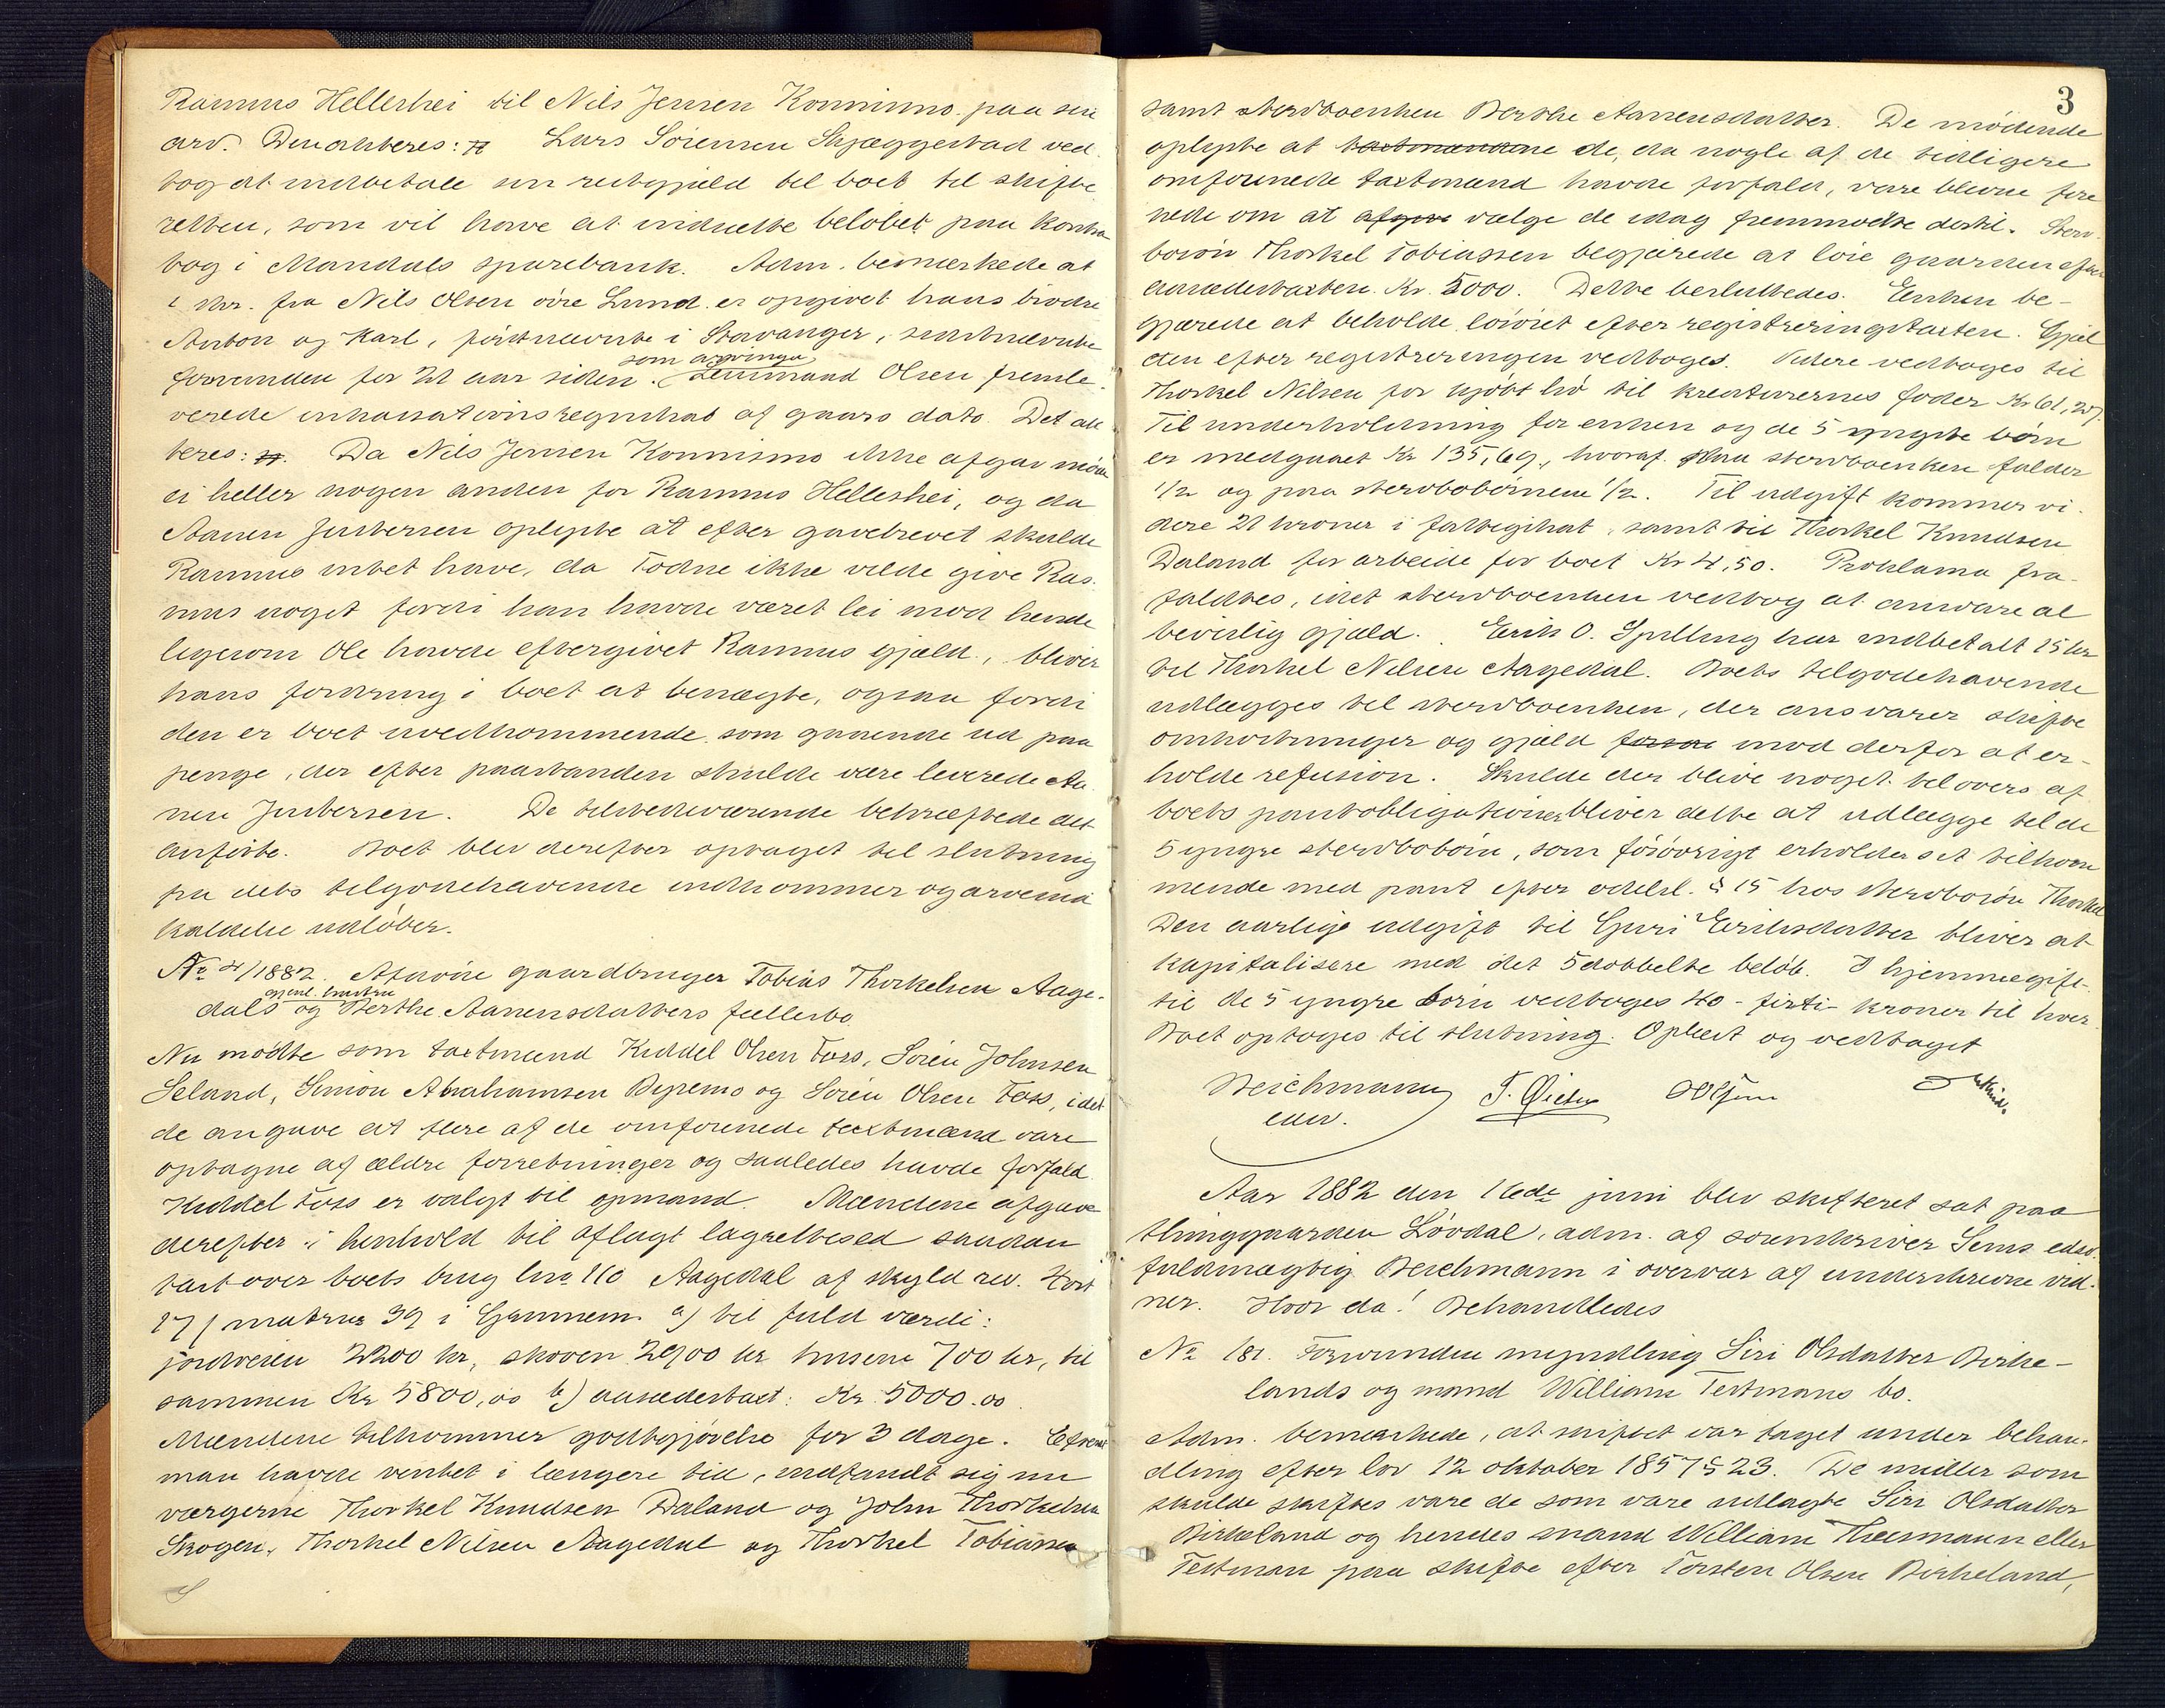 Rasmus Hellerhei til Nils Jensen Konnismo paa sin
arv. Den akteres: Lars Sörensen Skjæggestad ved-
tog at indbetale sin restgjæld til boet til skifte
retten, som vil have at indsætte belöbet paa kontra
bog i Mandals sparebank. Adm. bemærkede at
i skr. fra Nils Olsen övre Lund er opgivet hans brödre
Anton og Karl, förstnævnte i Stavanger, sidstnævnte
som arvinga
forsvunden for 21 aar siden. Lensmand Olsen fremle-
verede inkassationsregnskab af gaars dato. Det ak
teres: Da Nils Jensen Konnismo ikke afgav möde
ei heller nogen anden for Rasmus Helleshei, og da
Aanen Justersen oplyste at efter gavebrevet skulde
Rasmus intet have, da Todne ikke vilde give Ras-
mus noget fordi han havde været lei mod hende
ligesom Ole havde eftergivet Rasmus gjæld, bliver
hans fordring i boet at benægte, ogsaa fordi
den er boet uvedkommende som gaaende ud paa
penge, der efter paastanden skulde være leverede Aa
nen Justersen. De tilstedeværende bekræftede det
anförte. Boet blev derefter optaget til slutning
paa dets tilgodehavende indkommer og arveind
kaldelse udlöber.
No 4/1882. Afdöde gaardbruger Tobias Thorkelsen Aage-
gjenl. hustru
dals og Berthe Aanensdatters fællesbo
Nu mödte som taxtmænd Kiddel Olsen Foss, Sören Johnsen
Seland, Simon Abrahamsen Bypemo og Sören Olsen Foss, idet
de angave at flere af de omforenede taxtmænd vare
optagne af ældre forretninger og saaledes havde forfald
Kiddel Foss er valgt til opmand. Mændene afgave
derefter i henhold til aflagt lagrettesed saadan
taxt over boets brug lno 110 Aagedal af skyld rev. 4 ort
17 / matrno 39 i Grinnem a) til fuld værdi:
jordveien 2200 kr, skoven 2900 kr husene 700 kr, til
sammen Kr 5800,00 b) aasædestaxt: Kr. 5000.00
Mændene tilkommer godtgjörelse for 3 dage. Efterat
man havde ventet i længere tid, indfandt sig nu
værgerne Thorkel Knudsen Daland og John Thorkelsen
Skogen, Thorkel Nilsen Aagedal og Thorkel Tobiassen
3
samt stervboenken Berthe Aanensdatter. De mödende
oplyste at taxtmændene de, da nogle af de tidligere
omforenede taxtmænd havde forfald, vare blevne fore
nede om at afgive vælge de idag fremmödte dertil. Sterv-
bosön Thorkel Tobiassen begjærede at löse gaarden efter
aasædestaxten Kr. 5000. Dette besluttedes. Enken be-
gjærede at beholde lösöret efter registreringstaxten. Gjæl
den efter registreringen vedtoges. Videre vedtoges til
Thorkel Nilsen for kjöbt hö til kreaturernes foder Kr 61,27.
Til underholdning for enken og de 5 yngste börn
er medgaaet Kr 135,69, hvoraf paa stervboenken falder
1/2 og paa stervbobörnene 1/2. Til udgift kommer vi-
dere 21 kroner i fattigskat samt til Thorkel Knudsen
Daland for arbeide for boet Kr 4,50. Proklama fra-
faldtes, idet stervboenken vedtog at ansvare al
bevislig gjæld. Erik O. Spilling har indbetalt 15 kr
til Thorkel Nilsen Aagedal. Boets tilgodehavende
udlægges til stervboenken, der ansvarer skifte
omkostninger og gjæld mod derfor at er-
holde refusion. Skulde der blive noget tilovers af
boets pantobligationer bliver dette at udlægge til de
5 yngre stervbobörn, som forövrigt erholder sit tilkom
mende med pant efter odelsl. § 15 hos stervbosön Thorkel
Den aarlige udgift til Guri Eriksdatter bliver at
kapitalisere med det 5dobbelte belöb. I hjemmegift
til de 5 yngre börn vedtoges 40 - firti - kroner til hver
Boet optoges til slutning. Oplæst og vedtaget
Beichmann
edsv.
Aar 1882 den 16de juni blev skifteret sat paa
thinggaarden Lövdal, adm. af sorenskriver Sems edsv.
fuldmægtig Beichmann i overvær af underskrevne vid-
ner. Hvor da! Behandledes
No 181. Forsvunden myndling Siri Olsdatter Birke-
lands og mand William Testmans bo.
Adm. bemærkede, at skiftet var taget under behan-
dling efter lov 12 oktober 1857 § 23. De midler som
skulde skiftes vare de som vare udlagte Siri Olsdatter
Birkeland og hendes mand William Theesmann eller
Testman paa skifte efter Torsten Olsen Birkeland,